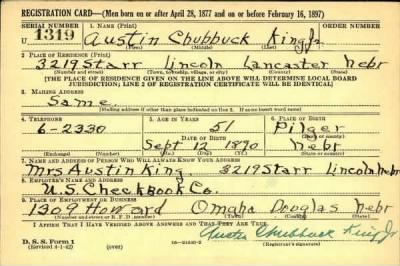 REGISTRATION CARD—(Men born on or after April 28, 1877 and on or before February 16, 1897)
SERIAL NUMBER 1. NAME (Print) ORDER NUMBER
U 1319 Austin Chubbuck King Jr.
(First) (Middle) (Last)
2. PLACE OF RESIDENCE (Print)
3219 Starr Lincoln Lancaster Nebr
(Number and street) (Town, township, village, or city) (County) (State)
[THE PLACE OF RESIDENCE GIVEN ON THE LINE ABOVE WILL DETERMINE LOCAL BOARD
JURISDICTION; LINE 2 OF REGISTRATION CERTIFICATE WILL BE IDENTICAL]
3. MAILING ADDRESS
Same.
[Mailing address if other than place indicated on line 2. If same insert word same]
4. TELEPHONE 5. AGE IN YEARS 6. PLACE OF BIRTH
6-2330 51 Pilger
DATE OF BIRTH (Town or county)
Sept 12 1890 Nebr
(Exchange) (Number) (Mo.) (Day) (Yr.) (State or country)
7. NAME AND ADDRESS OF PERSON WHO WILL ALWAYS KNOW YOUR ADDRESS
Mrs Austin King. 3219 Starr Lincoln Nebr
8. EMPLOYER'S NAME AND ADDRESS
U.S. Check Book Co.
9. PLACE OF EMPLOYMENT OR BUSINESS
1309 Howard Omaha Douglas Nebr
(Number and street or R. F. D. number) (Town) (County) (State)
I AFFIRM THAT I HAVE VERIFIED ABOVE ANSWERS AND THAT THEY ARE TRUE.
D. S. S. Form 1
(Revised 4-1-42) (over) Austin Chubbuck King Jr
(Registrant's signature)